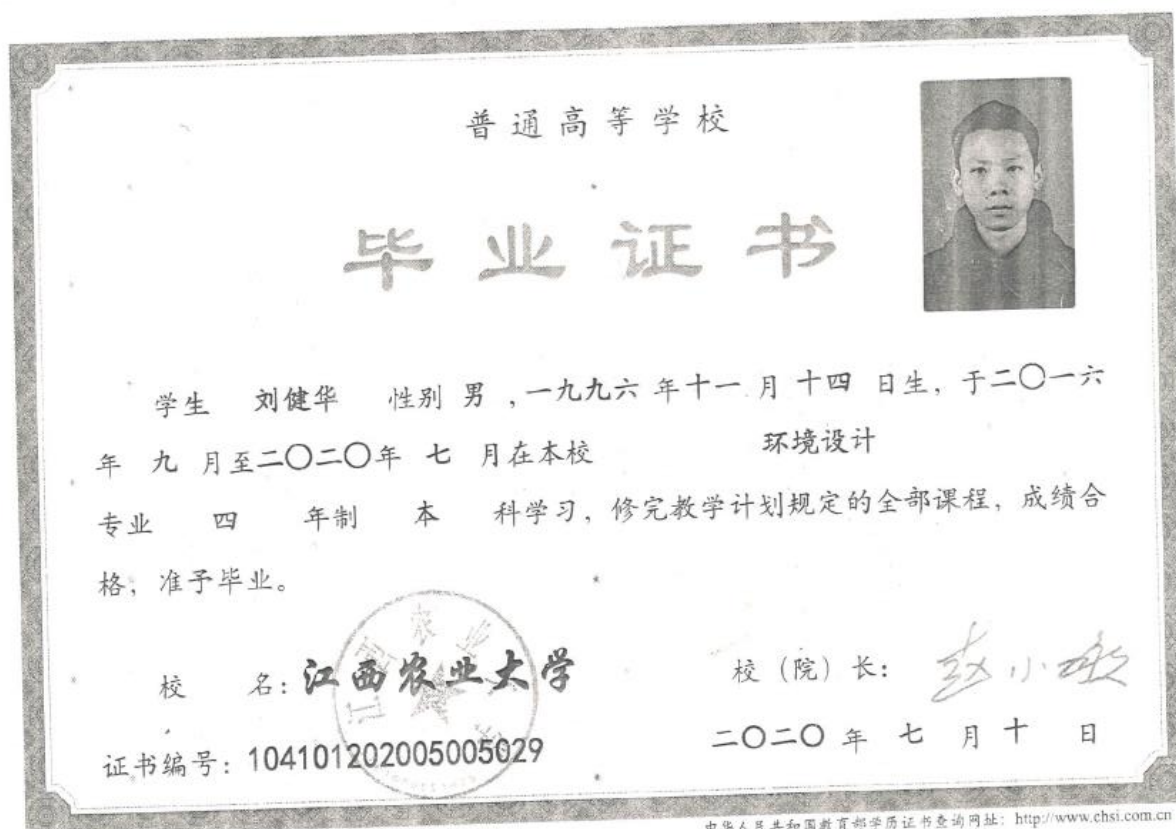 普通高等学校
毕业证书
学生 刘健华 性别 男 ,一九九六 年十一 月 十四 日生，于二〇一六
年 九 月至二〇二〇年 七 月在本校 环境设计
专业 四 年制 本 科学习，修完教学计划规定的全部课程，成绩合
格，准予毕业。
校 名：江西农业大学
校（院）长：赵小敏
证书编号：104101202005005029
二〇二〇 年 七 月 十 日
中华人民共和国教育部学历证书查询网址：http://www.chsi.com.cn